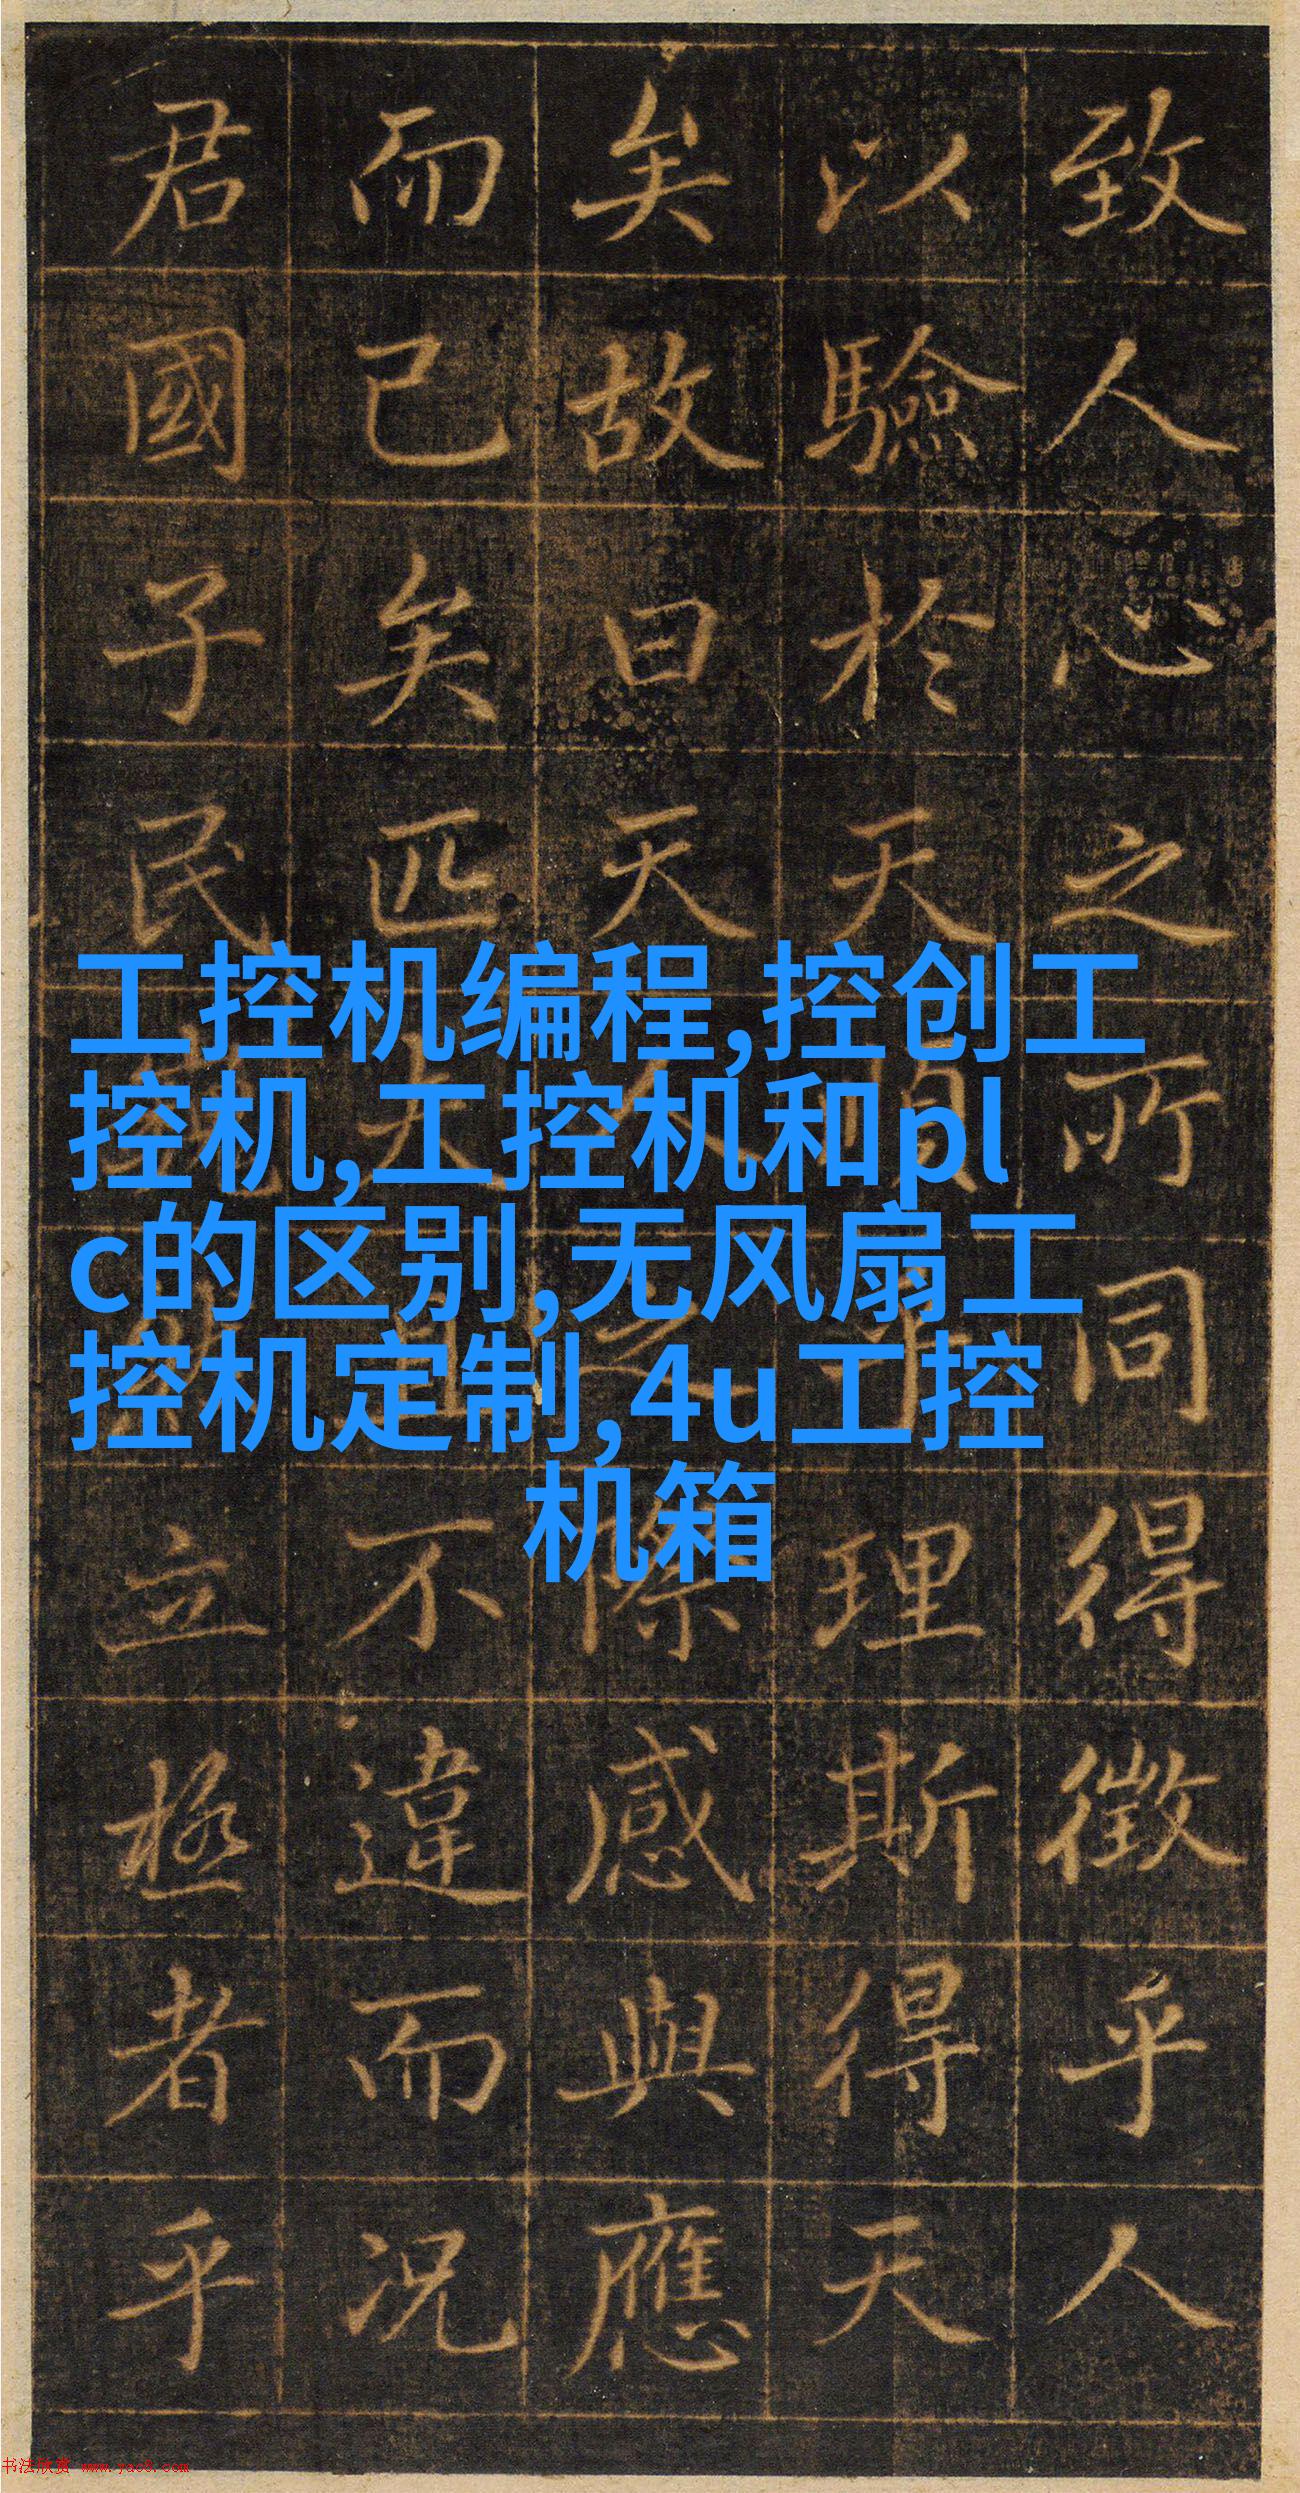 致人心之所同得徵乎人
以驗於天乎理斯得天
矣故曰天人之際感與應
而已矣匹夫且不違而況
君國子民立極者乎
工控机编程,控创工
控机,工控机和pl
c的区别,无风扇工
控机定制,4u工控
机箱
书法欣赏 www.yac8.com